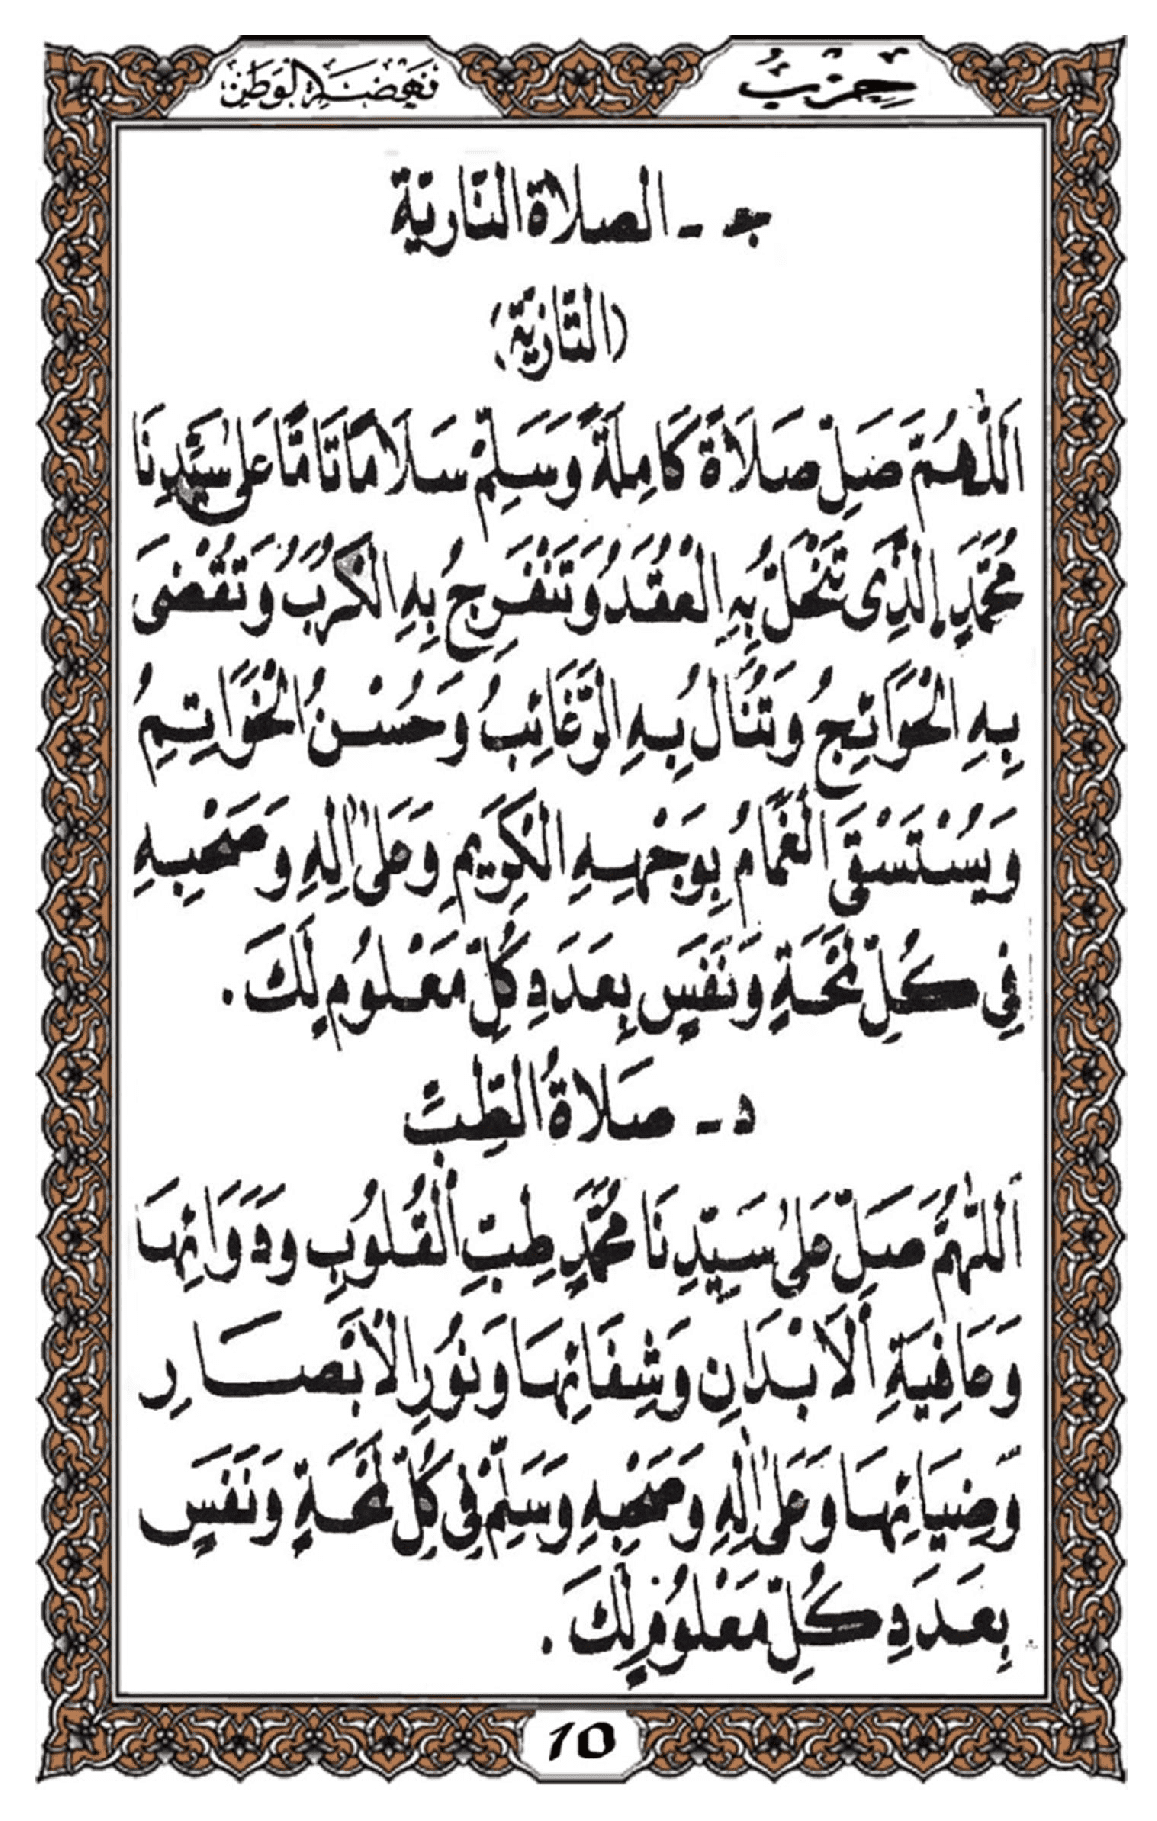 حِزْبُ
نَهْضَةِ الْوَطَنْ
جـ ـ الصلاة النَّارِيَّة
(التَّازِيَّة)
اَللّٰهُمَّ صَلِّ صَلَاةً كَامِلَةً وَسَلِّمْ سَلَامًا تَامًّا عَلٰى سَيِّدِنَا
مُحَمَّدٍ ࣙالَّذِى تَنْحَلُّ بِهِ الْعُقَدُ وَتَنْفَرِجُ بِهِ الْكُرَبُ وَتُقْضَى
بِهِ الْحَوَائِجُ وَتُنَالُ بِهِ الرَّغَائِبُ وَحُسْنُ الْخَوَاتِمِ
وَيُسْتَسْقَى الْغَمَامُ بِوَجْهِهِ الْكَرِيمِ وَعَلٰى اٰلِهِ وَصَحْبِهِ
فِي كُلِّ لَمْحَةٍ وَنَفَسٍ بِعَدَدِ كُلِّ مَعْلُومٍ لَكَ .
د ـ صَلَاةُ الطِّبِّ
اَللّٰهُمَّ صَلِّ عَلٰى سَيِّدِنَا مُحَمَّدٍ طِبِّ الْقُلُوبِ وَدَوَائِهَا
وَعَافِيَةِ الْاَبْدَانِ وَشِفَائِهَا وَنُورِ الْاَبْصَارِ
وَضِيَائِهَا وَعَلٰى اٰلِهِ وَصَحْبِهِ وَسَلِّمْ فِي كُلِّ لَمْحَةٍ وَنَفَسٍ
بِعَدَدِ كُلِّ مَعْلُومٍ لَكَ .
10